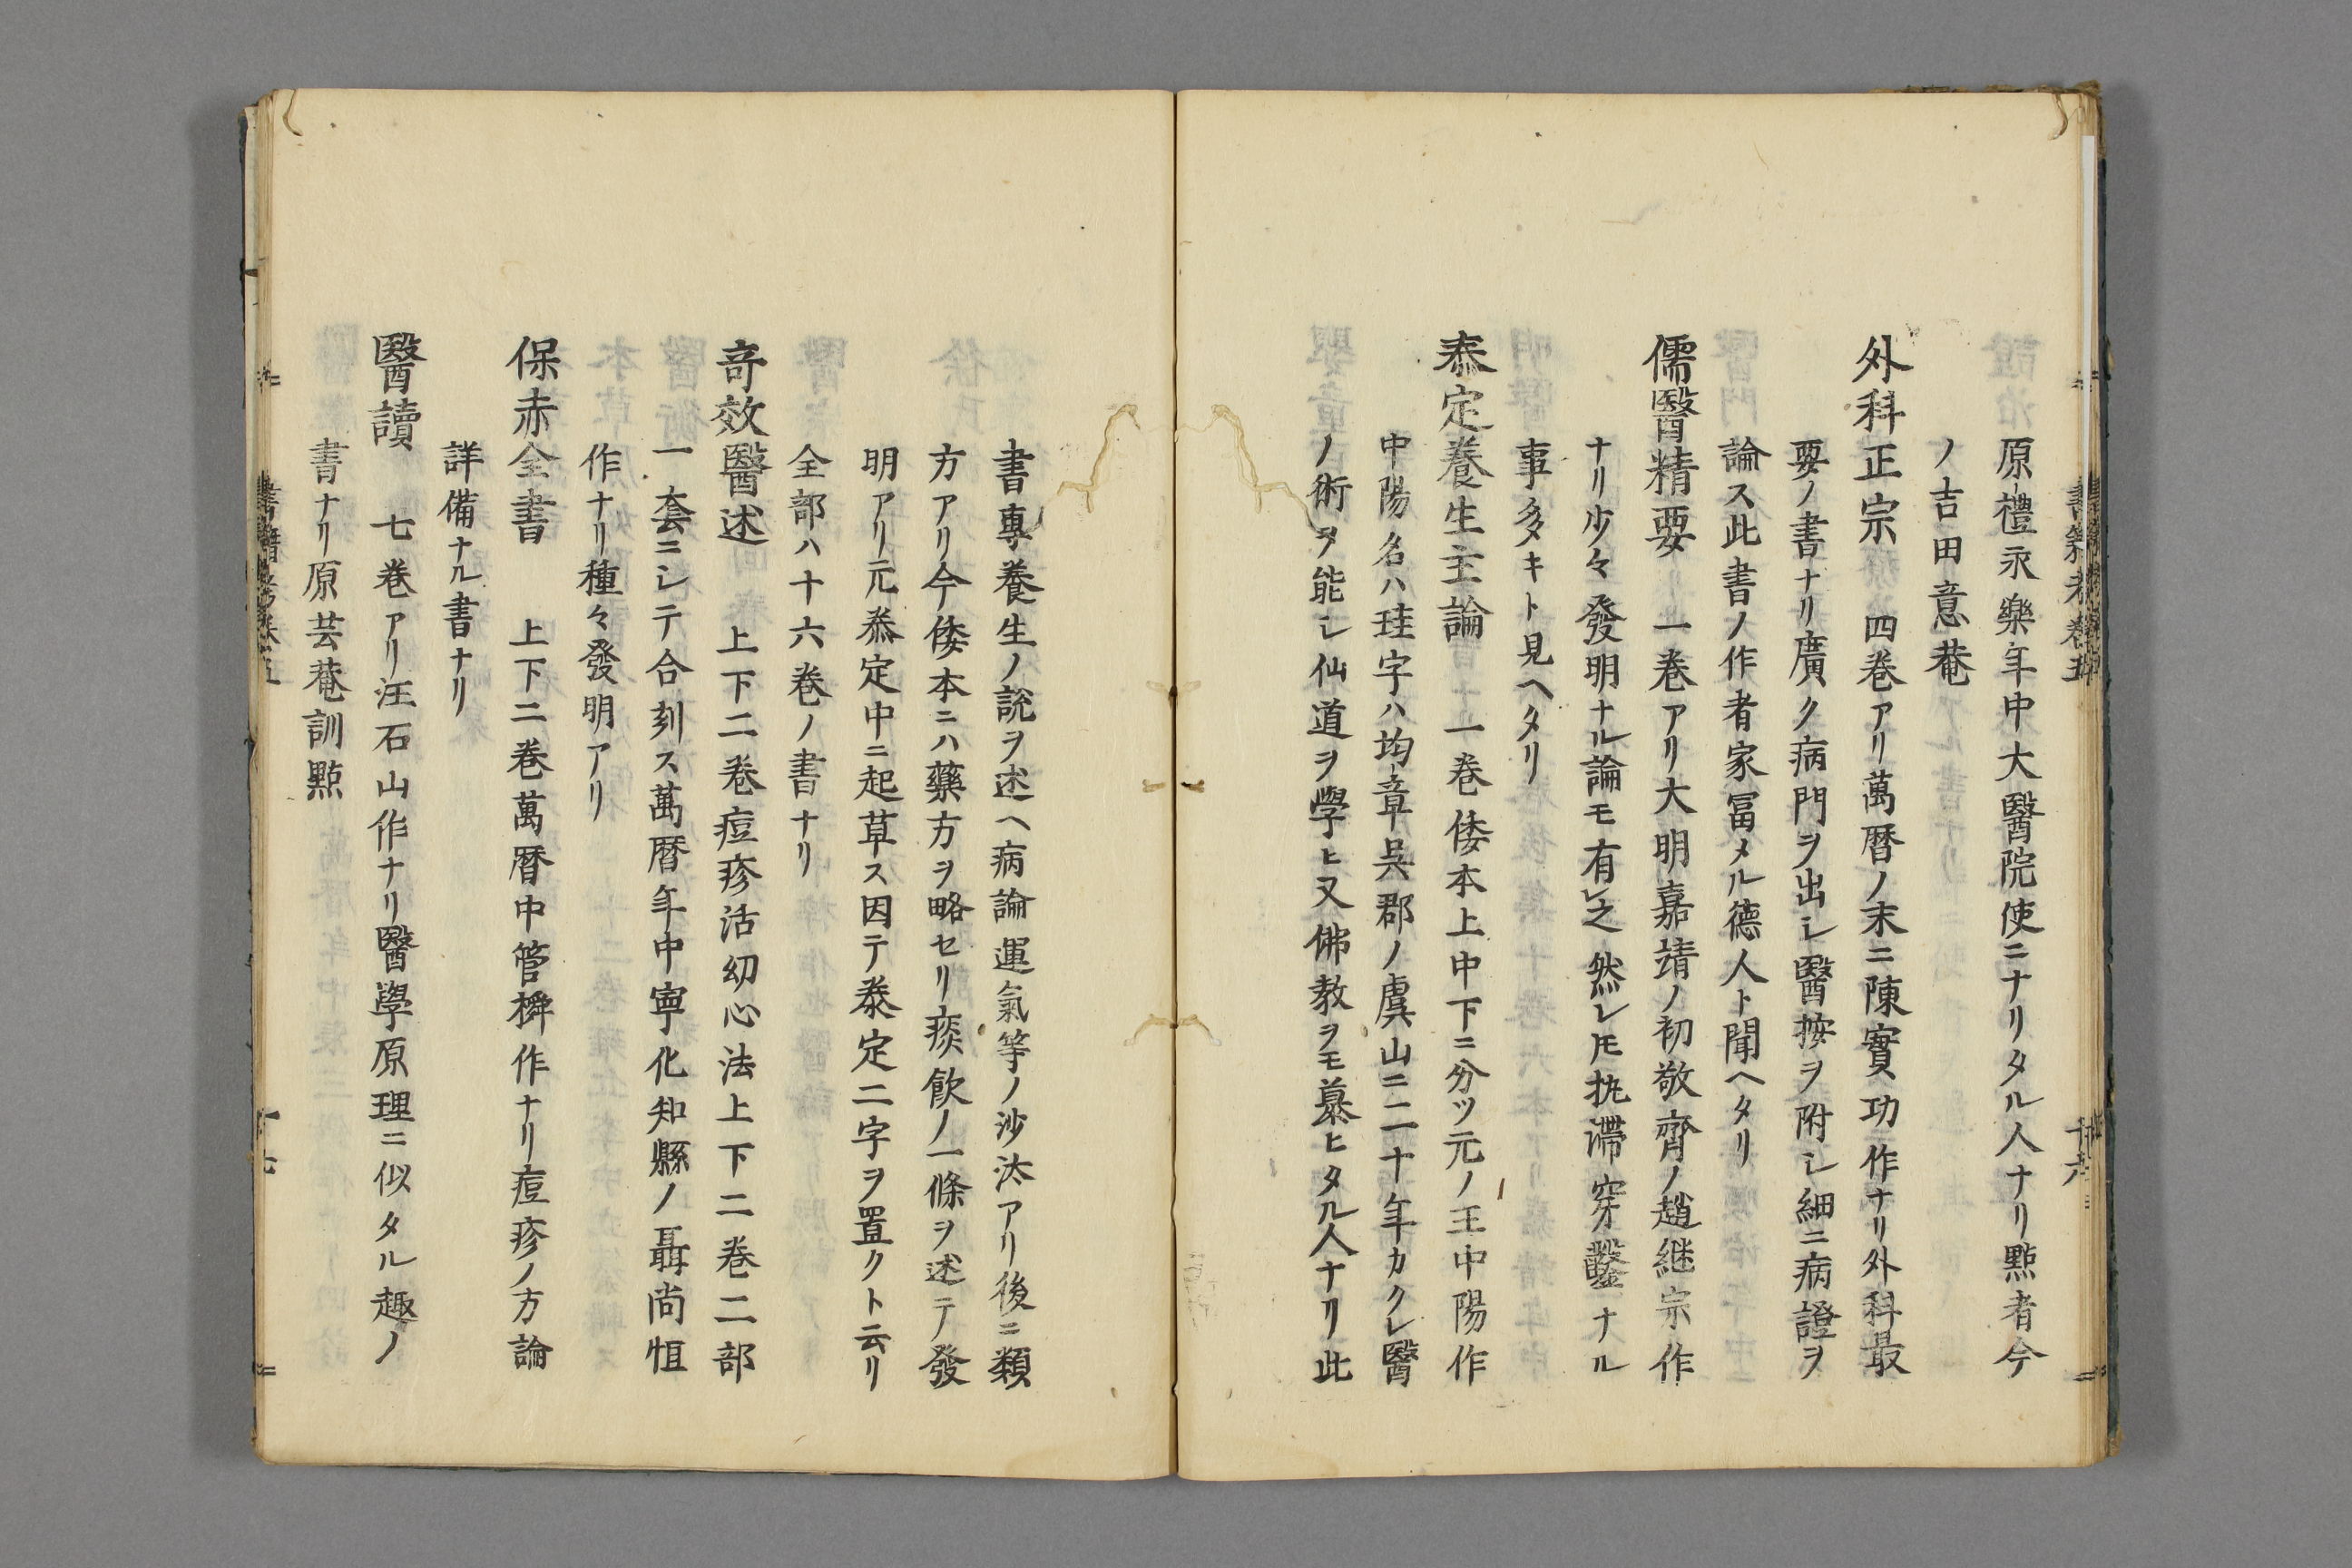 原禮永樂年中大醫院使ニナリタル人ナリ點者今
ノ吉田意菴
外科正宗 四巻アリ萬暦ノ末ニ陳實功作ナリ外科最
要ノ書ナリ廣ク病門ヲ出シ醫按ヲ附シ細ニ病證ヲ
論ス此書ノ作者家冨メル德人ト聞ヘタリ
儒醫精要 一巻アリ大明嘉靖ノ初敬齊ノ趙継宗作
ナリ少々發明ナル論モ有レ之然レ𪜈執滯穿鑿ナル
事多キト見ヘタリ
泰定養生主論 一巻倭本上中下ニ分ツ元ノ王中陽作
中陽名ハ珪字ハ均章呉郡ノ虞山ニ二十年カクレ醫
ノ術ヲ能シ仙道ヲ學ヒ又佛教ヲモ慕ヒタル人ナリ此
書專養生ノ説ヲ述ヘ病論運氣等ノ沙汰アリ後ニ類
方アリ今倭本ニハ藥方ヲ略セリ痰飲ノ一條ヲ述テ發
明アリ元泰定中ニ起草ス因テ泰定二字ヲ置クト云リ
全部ハ十六巻ノ書ナリ
奇效醫述 上下二巻痘疹活幼心法上下二巻二部
一套ニシテ合刻ス萬暦年中寧化知縣ノ聶尚恒
作ナリ種々發明アリ
保赤全書 上下二巻萬暦中管橓作ナリ痘疹ノ方論
詳備ナル書ナリ
醫讀 七巻アリ汪石山作ナリ醫學原理ニ似タル趣ノ
書ナリ原芸菴訓點